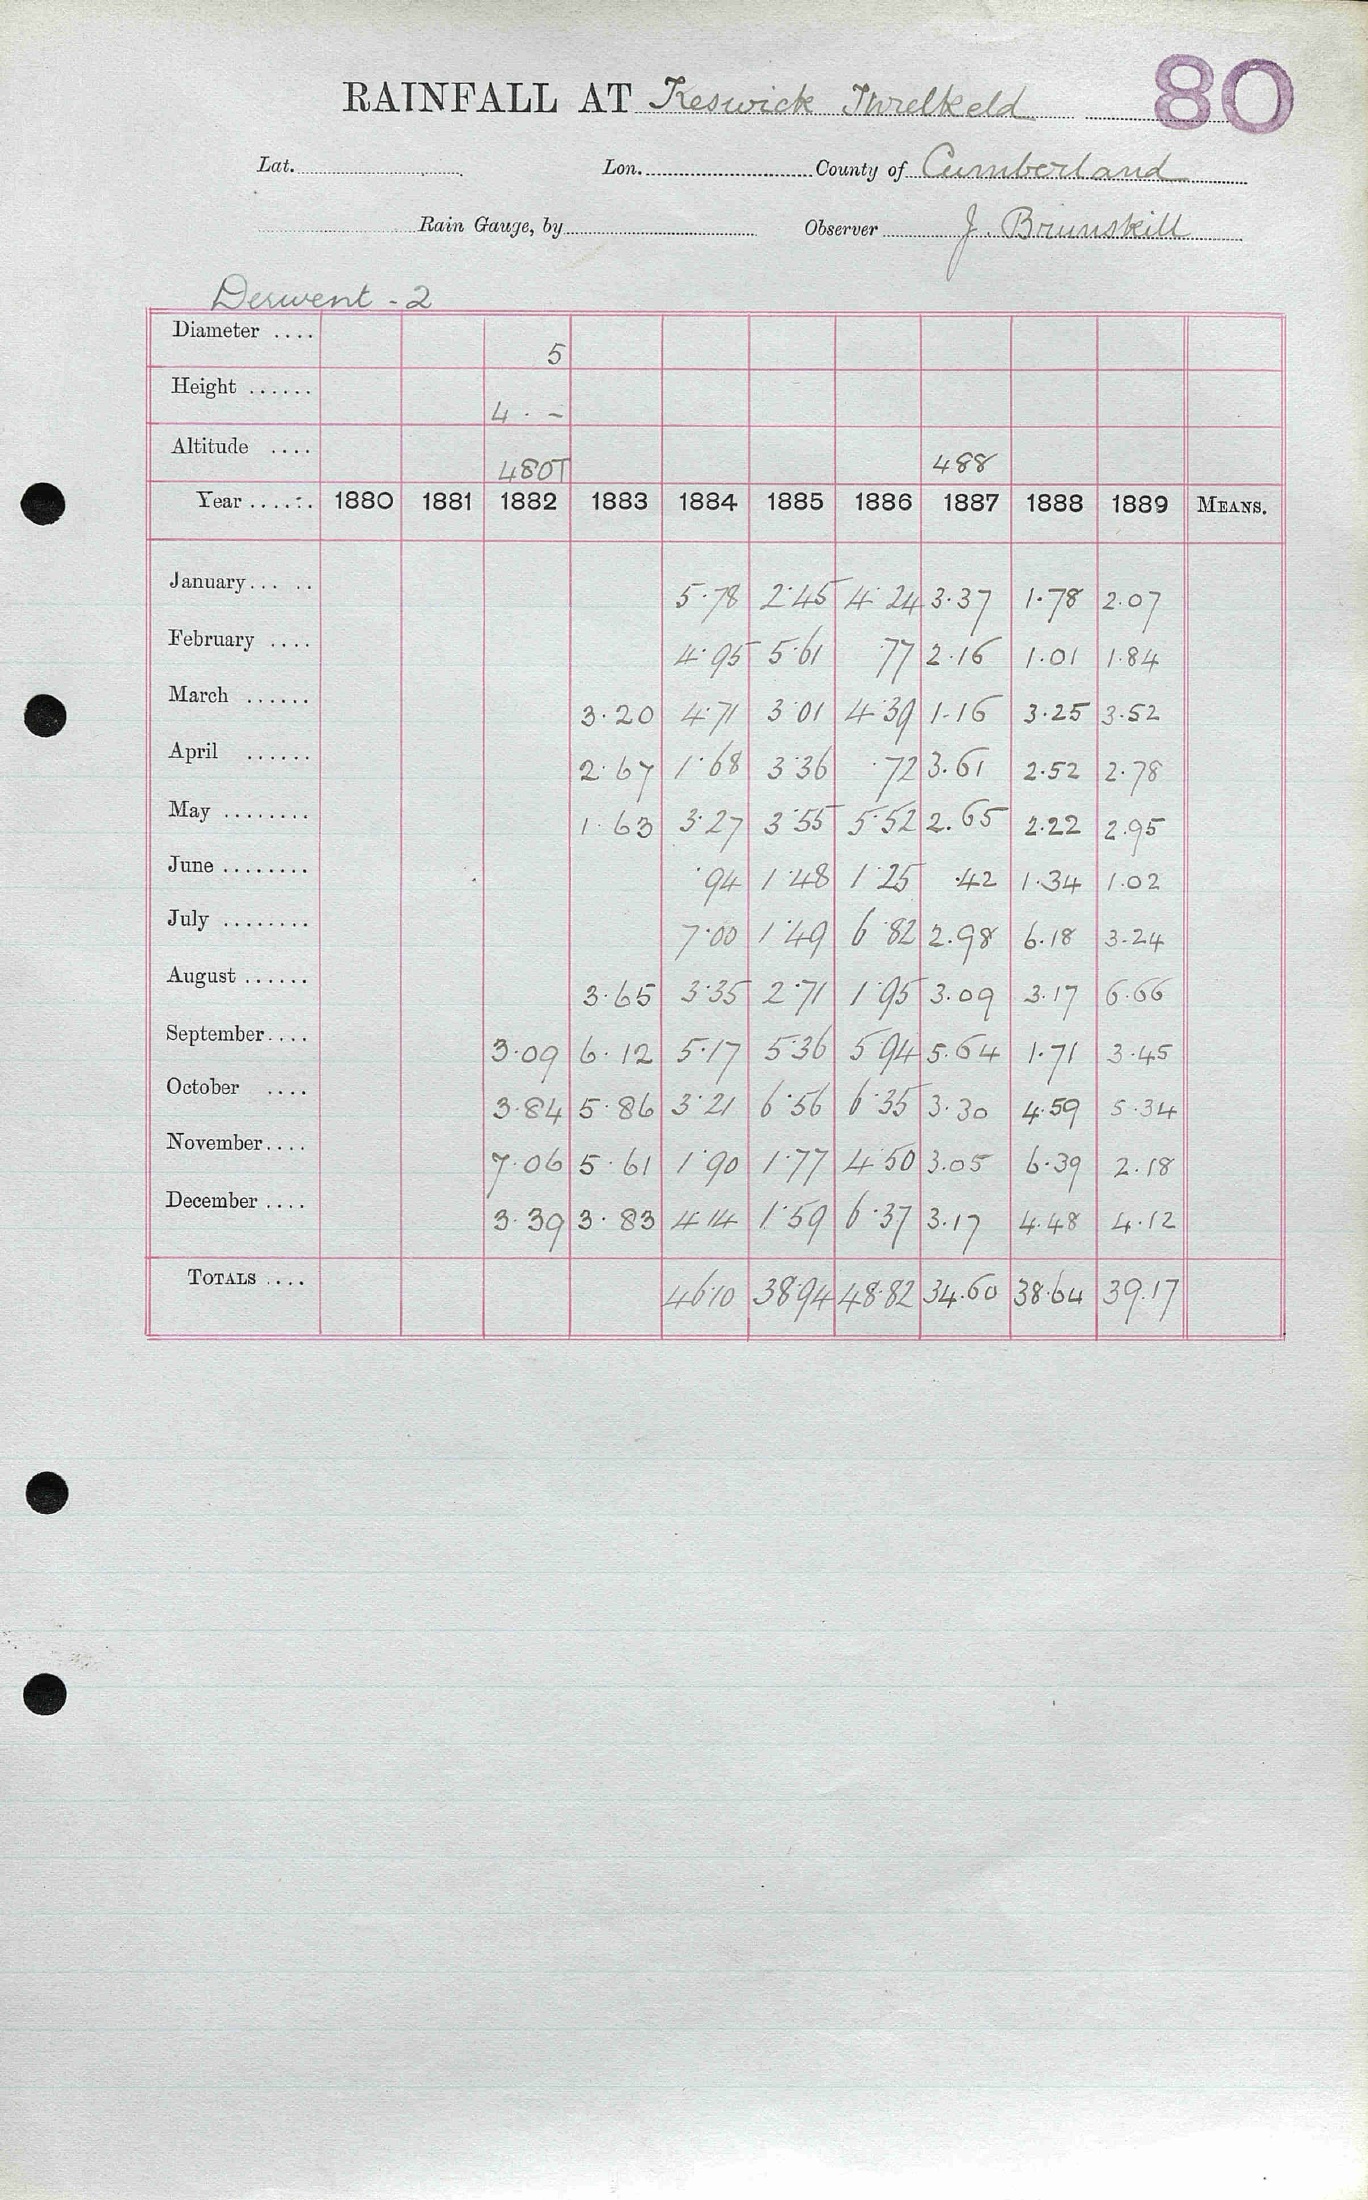 80
RAINFALL AT Keswick Threlkeld
Lat. Lon. County of Cumberland
Rain Gauge, by Observer J. Brunskill
Derwent - 2
Diameter .... 5
Height ...... 4 . -
Altitude .... 480T 488
Year ...... 1880 1881 1882 1883 1884 1885 1886 1887 1888 1889 MEANS.
January... .. 5.78 2.45 4.24 3.37 1.78 2.07
February .... 4.95 5.61 .77 2.16 1.01 1.84
March ...... 3.20 4.71 3.01 4.39 1.16 3.25 3.52
April ...... 2.67 1.68 3.36 .72 3.61 2.52 2.78
May ........ 1.63 3.27 3.55 5.52 2.65 2.22 2.95
June ........ .94 1.48 1.25 .42 1.34 1.02
July ........ 7.00 1.49 6.82 2.98 6.18 3.24
August ...... 3.65 3.35 2.71 1.95 3.09 3.17 6.66
September.... 3.09 6.12 5.17 5.36 5.94 5.64 1.71 3.45
October .... 3.84 5.86 3.21 6.56 6.35 3.30 4.59 5.34
November.... 7.06 5.61 1.90 1.77 4.50 3.05 6.39 2.18
December .... 3.39 3.83 4.14 1.59 6.37 3.17 4.48 4.12
TOTALS .... 46.10 38.94 48.82 34.60 38.64 39.17